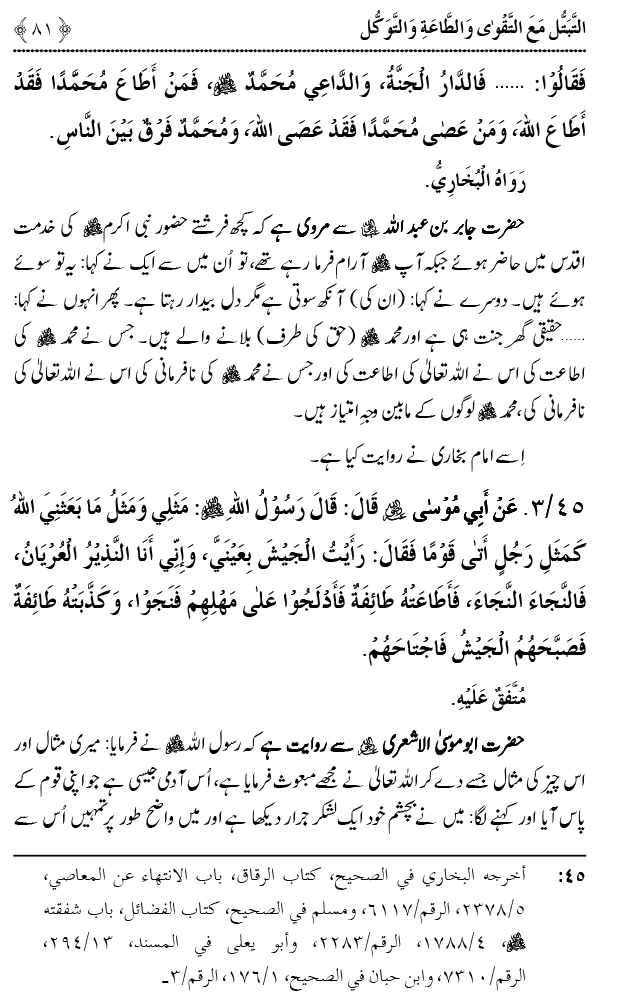 التَّبَتُّل مَعَ التَّقْوٰى وَالطَّاعَةِ وَالتَّوَكُّل ﴿ ٨١ ﴾
فَقَالُوْا: ...... فَالدَّارُ الْجَنَّةُ، وَالدَّاعِي مُحَمَّدٌ ﷺ، فَمَنْ أَطَاعَ مُحَمَّدًا فَقَدْ
أَطَاعَ اللهَ، وَمَنْ عَصٰى مُحَمَّدًا فَقَدْ عَصَى اللهَ، وَمُحَمَّدٌ فَرْقٌ بَيْنَ النَّاسِ.
رَوَاهُ الْبُخَارِيُّ.
حضرت جابر بن عبد اللہ ؓ سے مروی ہے کہ کچھ فرشتے حضور نبی اکرم ﷺ کی خدمت
اقدس میں حاضر ہوئے جبکہ آپ ﷺ آرام فرما رہے تھے، تو اُن میں سے ایک نے کہا: یہ تو سوئے
ہوئے ہیں۔ دوسرے نے کہا: (ان کی) آنکھ سوتی ہے مگر دل بیدار رہتا ہے۔ پھر انہوں نے کہا:
......حقیقی گھر جنت ہی ہے اور محمد ﷺ (حق کی طرف) بلانے والے ہیں۔ جس نے محمد ﷺ کی
اطاعت کی اس نے اللہ تعالیٰ کی اطاعت کی اور جس نے محمد ﷺ کی نافرمانی کی اس نے اللہ تعالیٰ کی
نافرمانی کی، محمد ﷺ لوگوں کے مابین وجہِ امتیاز ہیں۔
اِسے امام بخاری نے روایت کیا ہے۔
٣/٤٥. عَنْ أَبِي مُوْسٰى ؓ قَالَ: قَالَ رَسُوْلُ اللهِ ﷺ: مَثَلِي وَمَثَلُ مَا بَعَثَنِيَ اللهُ
كَمَثَلِ رَجُلٍ أَتٰى قَوْمًا فَقَالَ: رَأَيْتُ الْجَيْشَ بِعَيْنَيَّ، وَإِنِّي أَنَا النَّذِيْرُ الْعُرْيَانُ،
فَالنَّجَاءَ النَّجَاءَ، فَأَطَاعَتْهُ طَائِفَةٌ فَأَدْلَجُوْا عَلٰى مَهْلِهِمْ فَنَجَوْا، وَكَذَّبَتْهُ طَائِفَةٌ
فَصَبَّحَهُمُ الْجَيْشُ فَاجْتَاحَهُمْ.
مُتَّفَقٌ عَلَيْهِ.
حضرت ابو موسیٰ الاشعری ؓ سے روایت ہے کہ رسول اللہ ﷺ نے فرمایا: میری مثال اور
اس چیز کی مثال جسے دے کر اللہ تعالیٰ نے مجھے مبعوث فرمایا ہے، اُس آدمی جیسی ہے جو اپنی قوم کے
پاس آیا اور کہنے لگا: میں نے بچشم خود ایک لشکر جرار دیکھا ہے اور میں واضح طور پر تمہیں اُس سے
٤٥: أخرجه البخاري في الصحيح، كتاب الرقاق، باب الانتهاء عن المعاصي،
٥/٢٣٧٨، الرقم/٦١١٧، ومسلم في الصحيح، كتاب الفضائل، باب شفقته
ﷺ، ٤/١٧٨٨، الرقم/٢٢٨٣، وأبو يعلى في المسند، ١٣/٢٩٤،
الرقم/٧٣١٠، وابن حبان في الصحيح، ١/١٧٦، الرقم/٣۔